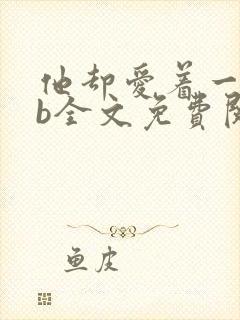 他却爱着一
b全文免費
鱼皮